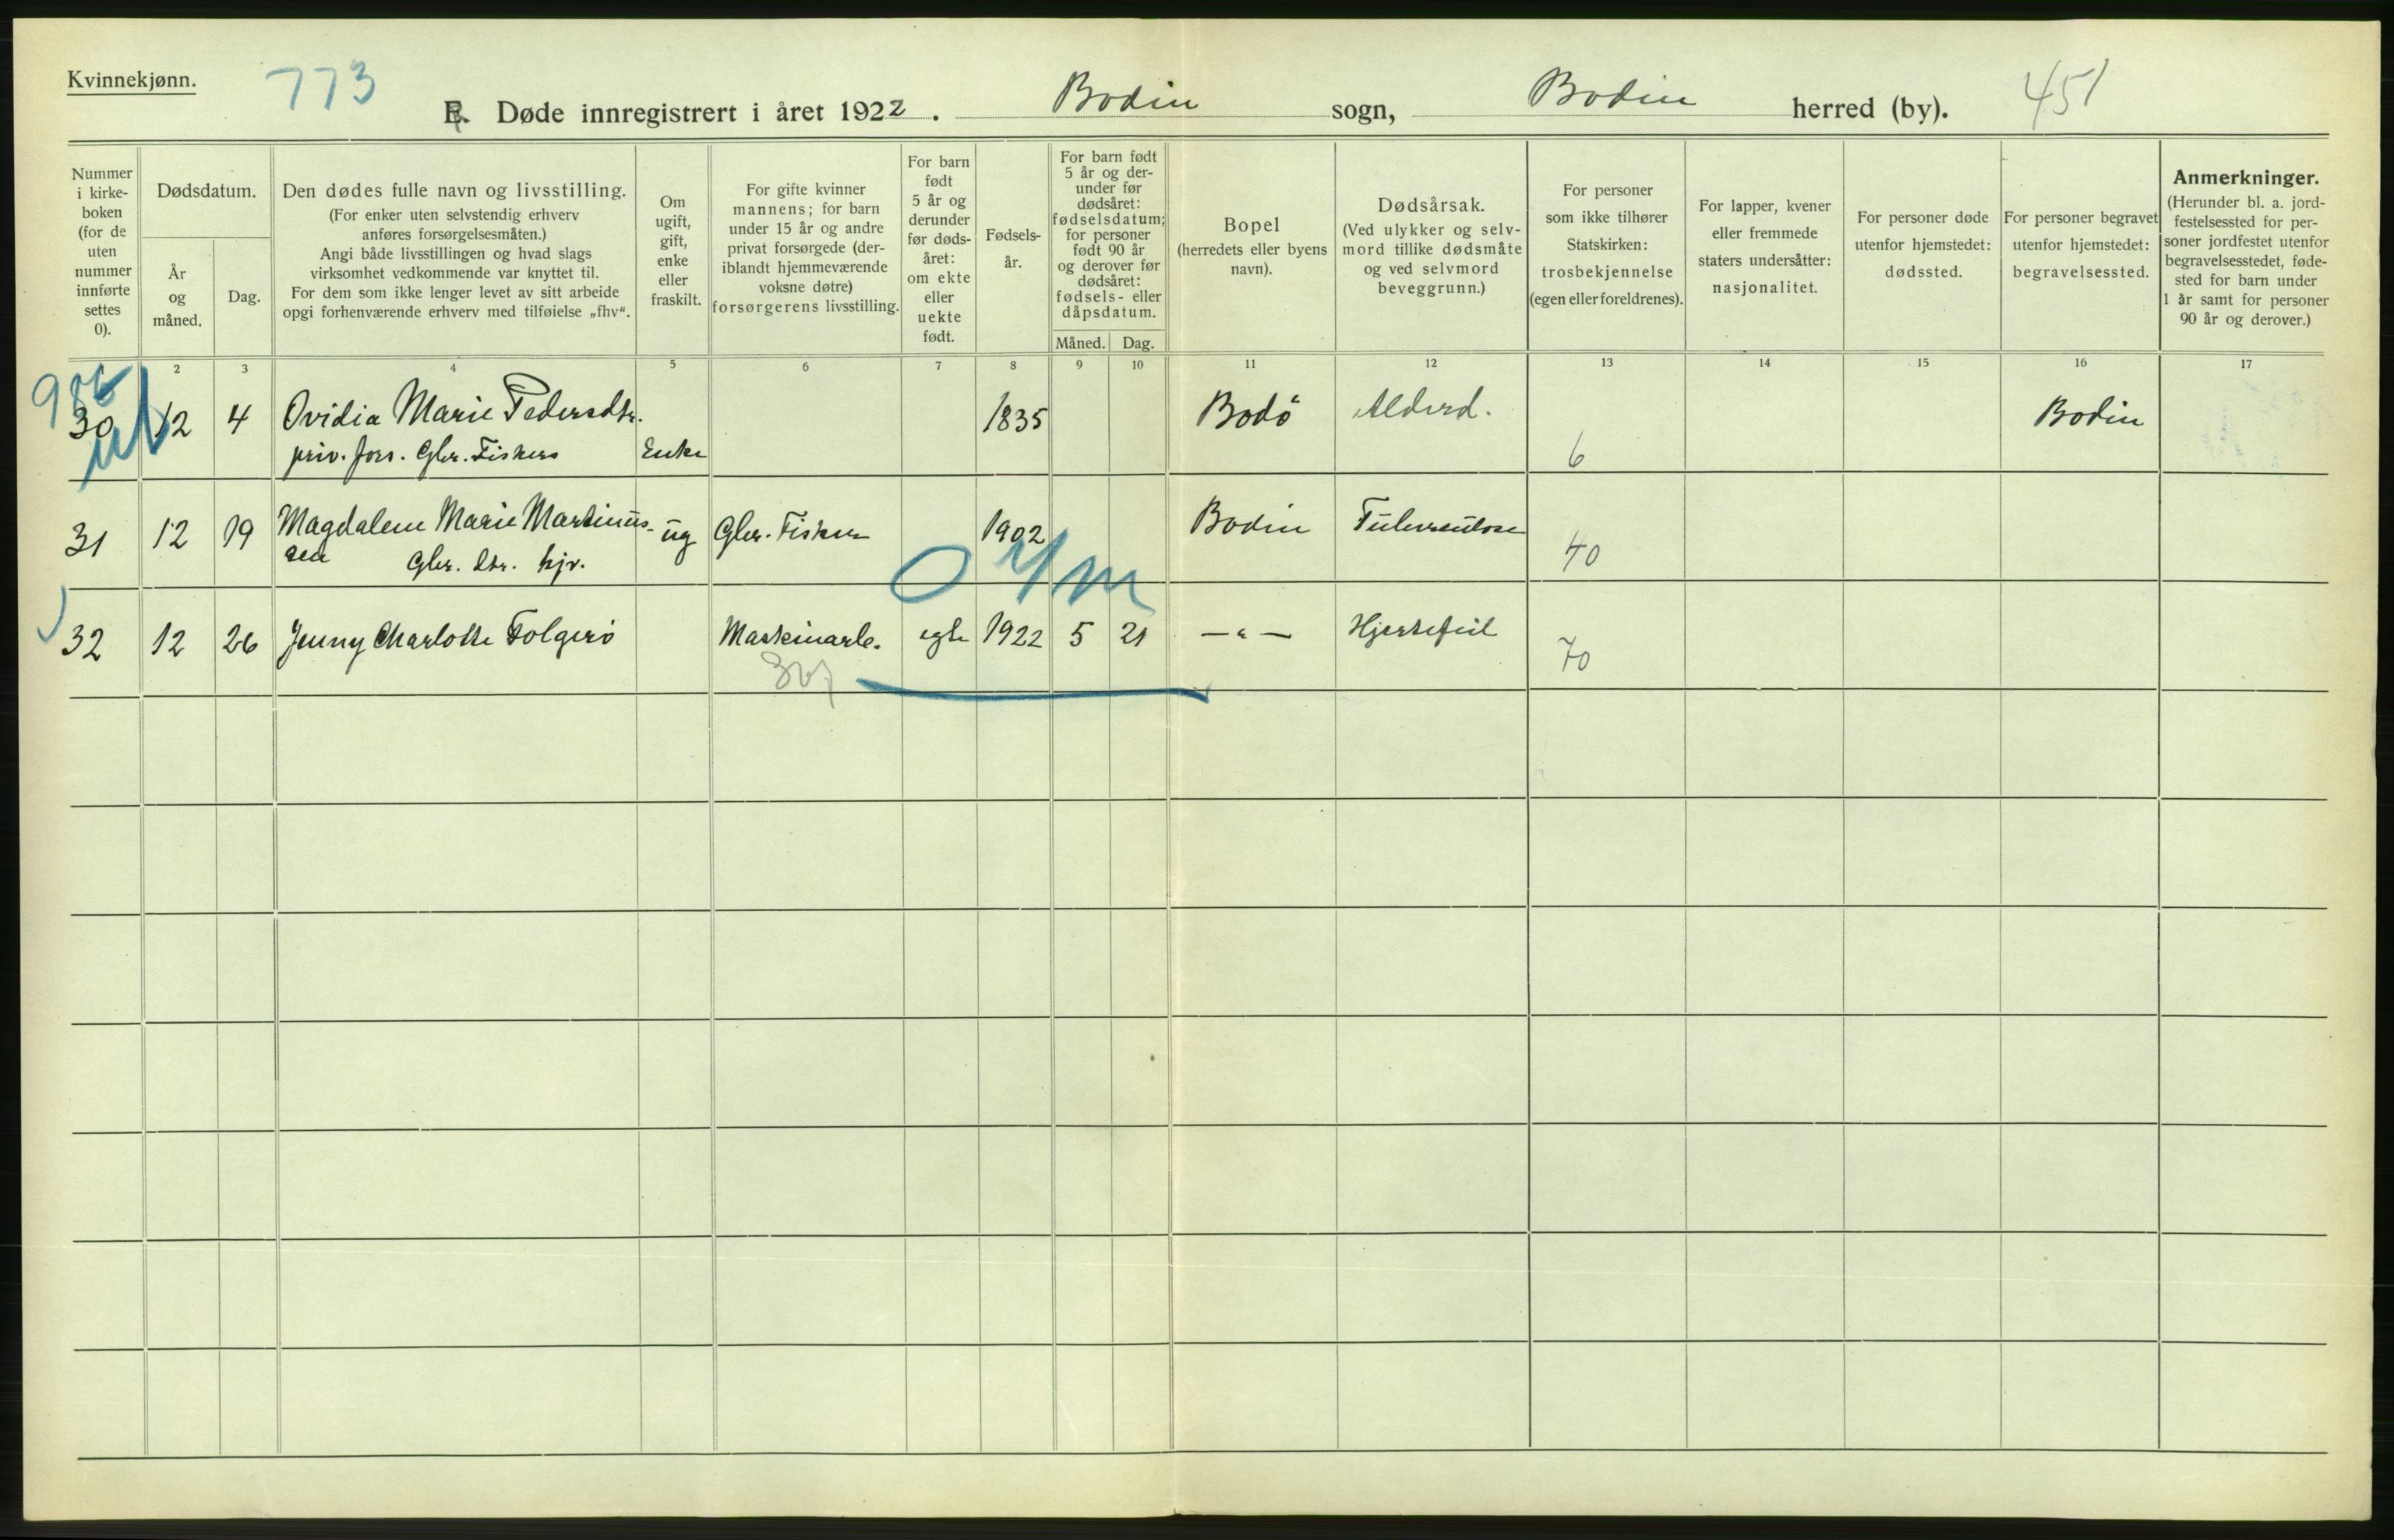 Kvinnekjønn.
773
E. Døde innregistrert i året 1922. Bodin sogn, Bodin herred (by). 451
Nummer i kirkeboken (for de uten nummer innførte settes 0).
Dødsdatum.
År og måned.
Dag.
Den dødes fulle navn og livsstilling.
(For enker uten selvstendig erhverv anføres forsørgelsesmåten.)
Angi både livsstillingen og hvad slags virksomhet vedkommende var knyttet til.
For dem som ikke lenger levet av sitt arbeide opgi forhenværende erhverv med tilføielse „fhv“.
Om ugift, gift, enke eller fraskilt.
For gifte kvinner mannens; for barn under 15 år og andre privat forsørgede (deriblandt hjemmeværende voksne døtre) forsørgerens livsstilling.
For barn født 5 år og derunder før dødsåret: om ekte eller uekte født.
Fødselsår.
For barn født 5 år og derunder før dødsåret: fødselsdatum; for personer født 90 år og derover før dødsåret: fødsels- eller dåpsdatum.
Måned. Dag.
Bopel
(herredets eller byens navn).
Dødsårsak.
(Ved ulykker og selvmord tillike dødsmåte og ved selvmord beveggrunn.)
For personer som ikke tilhører Statskirken: trosbekjennelse (egen eller foreldrenes).
For lapper, kvener eller fremmede staters undersåtter: nasjonalitet.
For personer døde utenfor hjemstedet: dødssted.
For personer begravet utenfor hjemstedet: begravelsessted.
Anmerkninger.
(Herunder bl. a. jordfestelsessted for personer jordfestet utenfor begravelsesstedet, fødested for barn under 1 år samt for personer 90 år og derover.)
2 3 4 5 6 7 8 9 10 11 12 13 14 15 16 17
30 12 4 Ovidia Marie Pedersdtr. 1835 Bodö Alderd. Bodin
priv. fors. Gbr. Fiskers Enke 6
31 12 19 Magdalene Marie Martinus- ug Gbr. Fisker 1902 Bodin Tuberculose
sen Gbr. dtr. hjv. 40
32 12 26 Jenny Charlotte Folgerö Maskinarb. egte 1922 5 21 — " — Hjertefeil
70